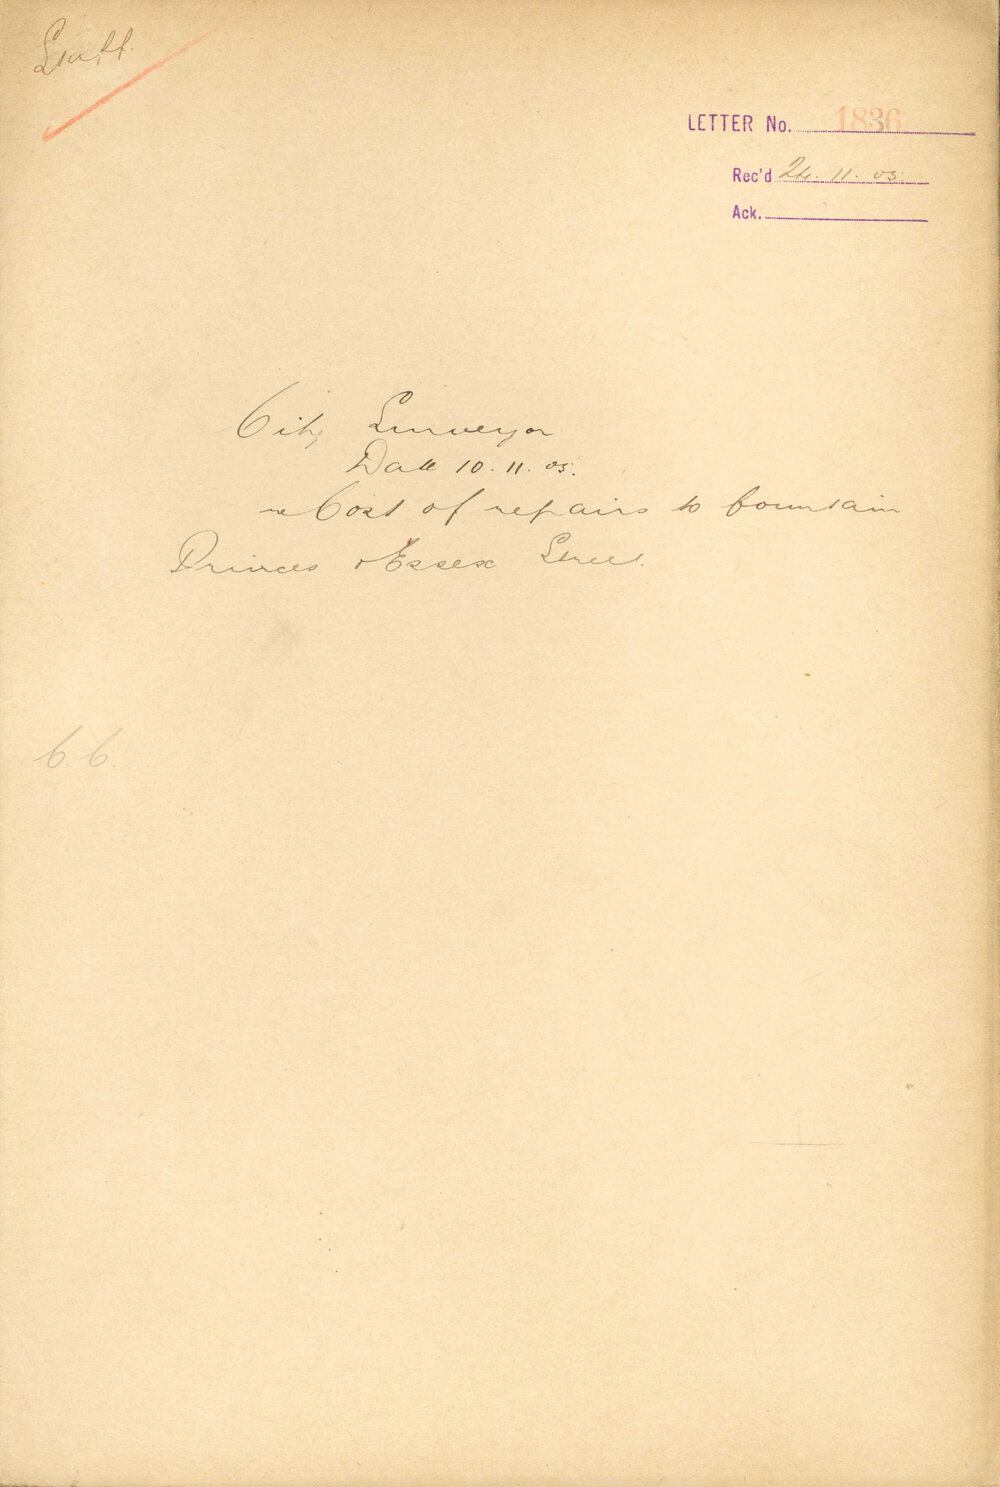 LETTER No. 1836
Rec'd 24. 11. 05.
Ack.
City Surveyor
Date 10. 11. 05.
re Cost of repairs to fountain
Princes & Essex Street.
C. C.